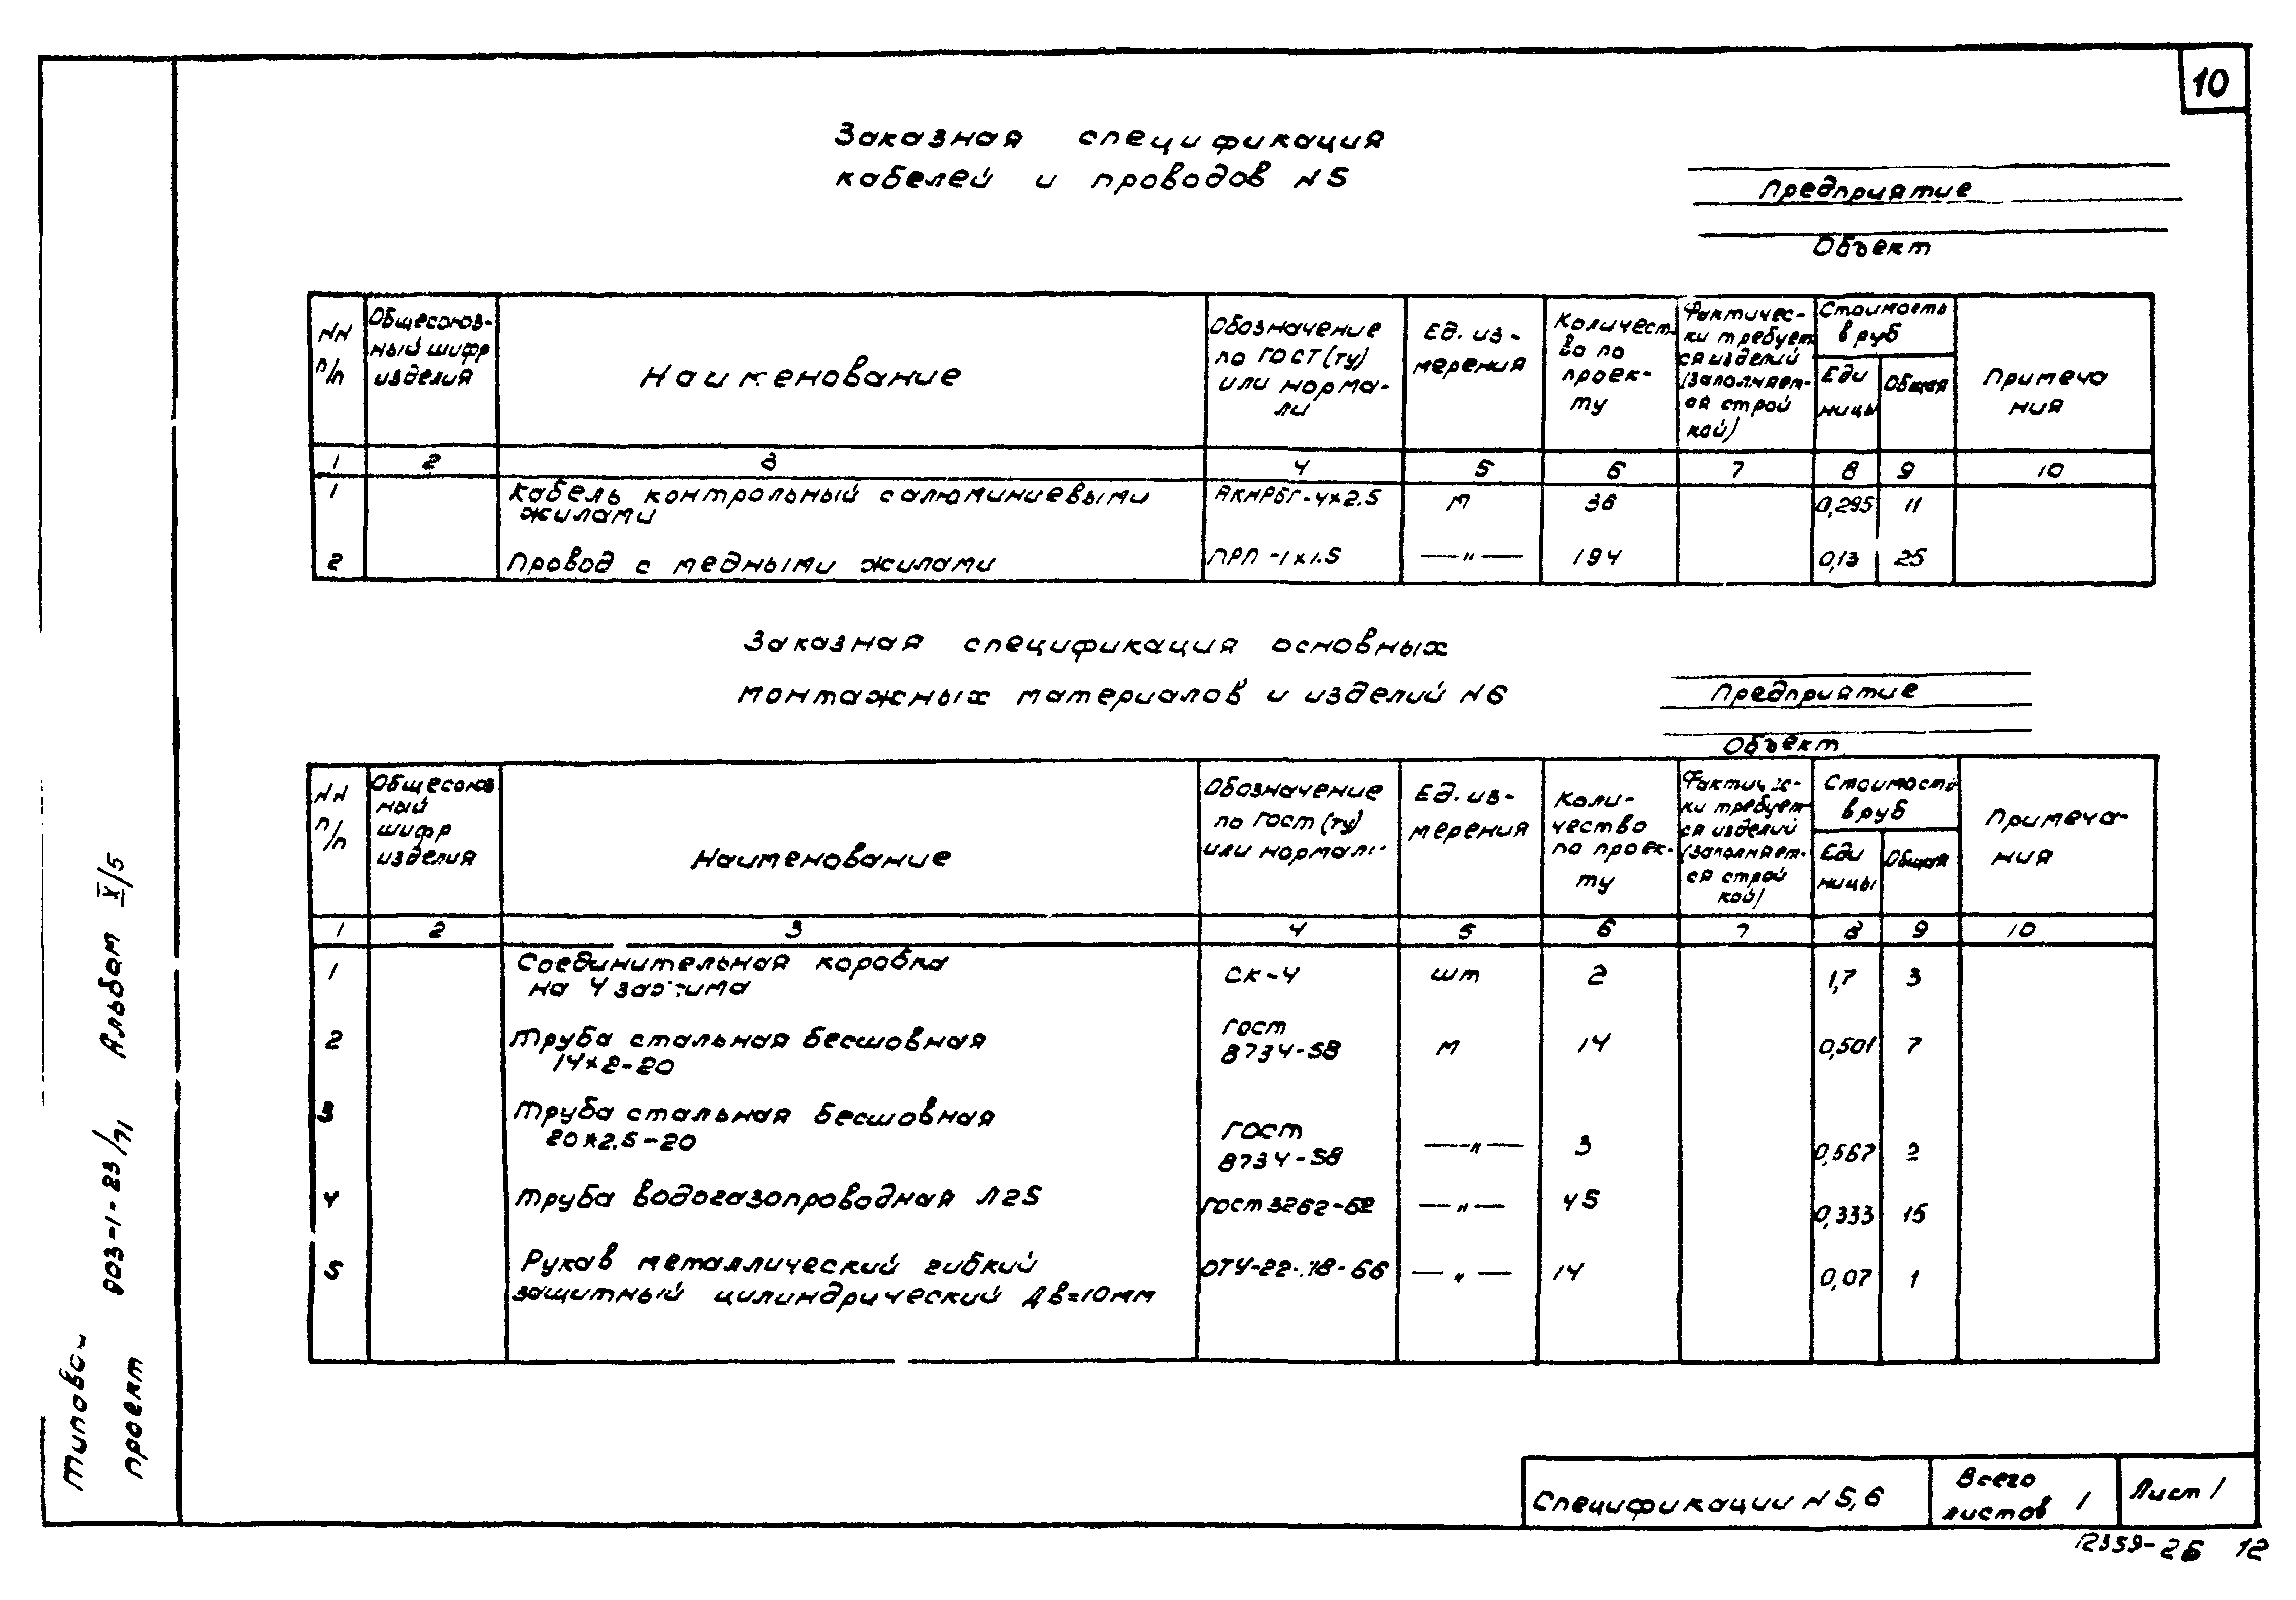 10
Заказная спецификация
кабелей и проводов N5
Предприятие
Объект
NN п/п | Общесоюз-ный шифр изделия | Наименование | Обозначение по ГОСТ (ту) или норма-ли | Ед. из-мерения | Количест-во по проек-ту | Фактичес-ки требует ся изделий (заполняет-ся строй кой) | Стоимость в руб | Еди ницы | Общая | Примеча ния
1 2 3 4 5 6 7 8 9 10
1 Кабель контрольный с алюминиевыми АКНРБГ-4×2.5 м 36 0,295 11
жилами
2 Провод с медными жилами ПРП-1×1.5 —"— 194 0,13 25
Заказная спецификация основных
монтажных материалов и изделий N6
Предприятие
Объект
NN п/п | Общесоюз ный шифр изделия | Наименование | Обозначение по ГОСТ (ту) или нормали | Ед. из-мерения | Коли-чество по проек-ту | Фактичес-ки требует ся изделий (заполняет-ся строй кой) | Стоимость в руб | Еди ницы | Общая | Примеча-ния
1 2 3 4 5 6 7 8 9 10
1 Соединительная коробка СК-4 шт 2 1,7 3
на 4 зажима
2 Труба стальная бесшовная ГОСТ 8734-58 м 14 0,501 7
14×2-20
3 Труба стальная бесшовная ГОСТ 8734-58 —"— 3 0,567 2
20×2.5-20
4 Труба водогазопроводная Л25 ГОСТ 3262-62 —"— 45 0,333 15
5 Рукав металлический гибкий ОТУ-22-18-66 —"— 14 0,07 1
защитный цилиндрический Дв=10мм
Типовой
проект 903-1-23/71 Альбом IX/5
Спецификации N5,6
Всего листов 1
Лист 1
12359-26 12